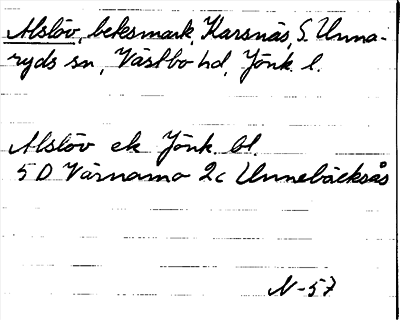 Alslöv, beksmark, Karsnäs, S. Unna-
ryds sn, Västbo hd, Jönk. l.
Alslöv ek Jönk. bl.
5 D Värnamo 2c Unnebäcksås
N-57